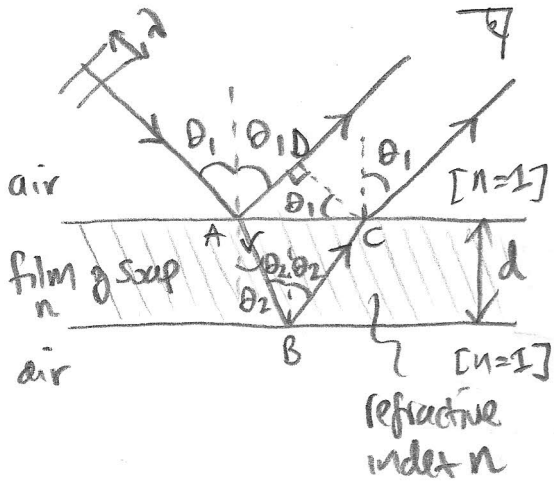 λ
θ₁ θ₁ D θ₁
air θ₁ C [n=1]
A C
film of soap θ₂ θ₂ d
n θ₂
B
air [n=1]
refractive
index n